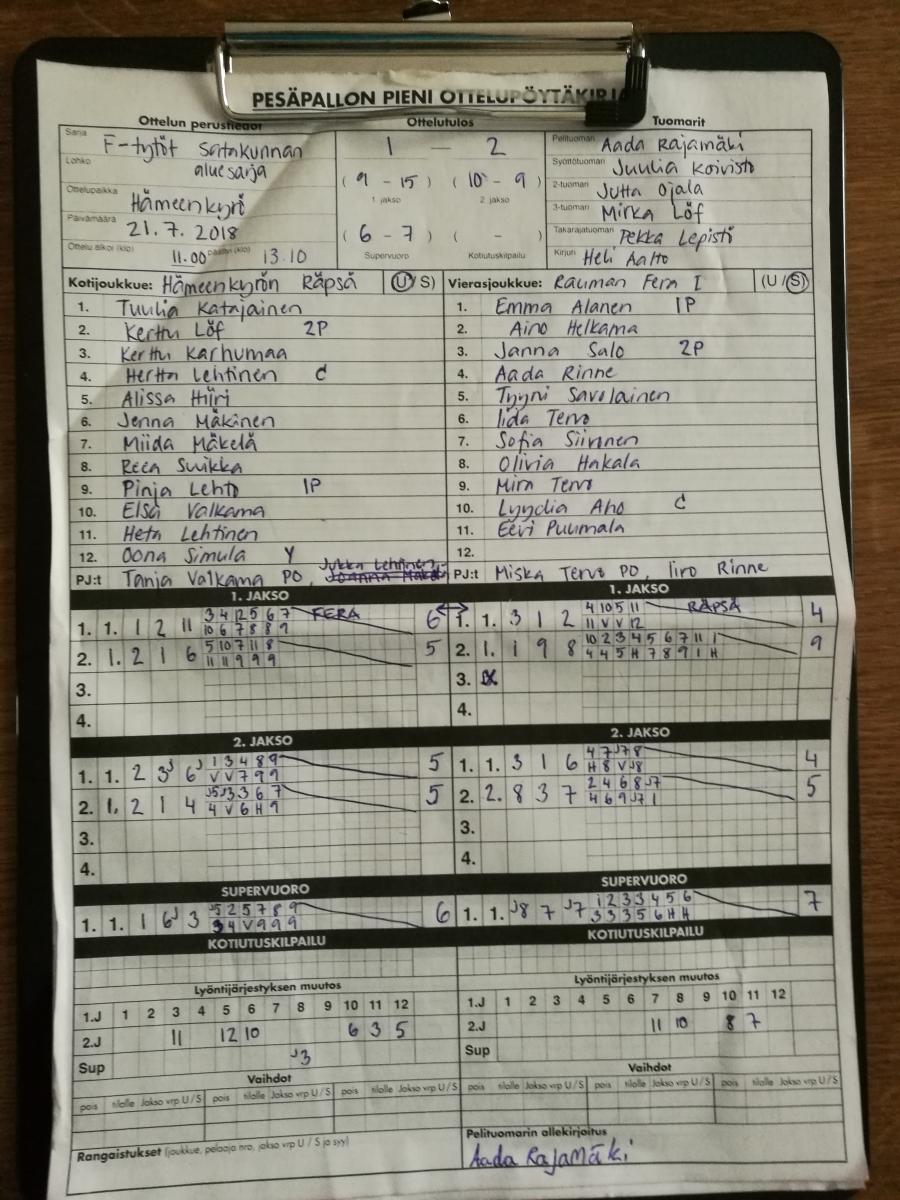 PESÄPALLON PIENI OTTELUPÖYTÄKIRJA
Ottelun perustiedot
Ottelutulos
Tuomarit
Sarja F-tytöt Satakunnan
Lohko aluesarja
Ottelupaikka Hämeenkyrö
Päivämäärä 21.7.2018
Ottelu alkoi (klo) 11.00 päättyi (klo) 13.10
1 — 2
(9 - 15) (10 - 9)
1 jakso 2 jakso
(6 - 7) ( - )
Supervuoro Kotiutuskilpailu
Pelituomari Aada Rajamäki
Syöttötuomari Juulia Koivisto
2-tuomari Jutta Ojala
3-tuomari Mirka Löf
Takarajatuomari Pekka Lepistö
Kirjuri Heli Aalto
Kotijoukkue: Hämeenkyrön Räpsä (U/S)
1. Tuulia Katajainen
2. Kerttu Löf 2P
3. Kerttu Karhumaa
4. Hertta Lehtinen C
5. Alissa Hiiri
6. Jenna Mäkinen
7. Miida Mäkelä
8. Reea Suikka
9. Pinja Lehto 1P
10. Elsa Valkama
11. Heta Lehtinen
12. Oona Simula Y
PJ:t Tanja Valkama PO, Jukka Lehtinen
Vierasjoukkue: Rauman Fera I (U/S)
1. Emma Alanen 1P
2. Aino Helkama
3. Janna Salo 2P
4. Aada Rinne
5. Tyyni Savolainen
6. Iida Tervo
7. Sofia Siivonen
8. Olivia Hakala
9. Mira Tervo
10. Lyydia Aho C
11. Eevi Puumala
12.
PJ:t Miska Tervo PO, Iiro Rinne
1. JAKSO
1. 1. 1 2 11 3 4 12 5 6 7 FERA 6
10 6 7 8 8 9
2. 1. 2 1 6 5 10 7 11 8 5
11 11 9 9 9
3.
4.
1. JAKSO
1. 1. 3 1 2 4 10 5 11 RÄPSÄ 4
11 V V 12
2. 1. 1 9 8 10 2 3 4 5 6 7 11 1 9
4 4 5 H 7 8 9 1 H
3.
4.
2. JAKSO
1. 1. 2 3J 6J 1 3 4 8 9 5
V V 7 9 9
2. 1. 2 1 4 J5 J3 3 6 7 5
4 V 6 H 9
3.
4.
2. JAKSO
1. 1. 3 1 6 4 7 J7 8 4
H 8 V J8
2. 2. 8 3 7 2 4 6 8 J7 5
4 6 9 J7 1
3.
4.
SUPERVUORO
1. 1. 1 6J 3 J5 2 5 7 8 9 6
3 4 V 9 9 9
SUPERVUORO
1. 1. J8 7 J7 1 2 3 3 4 5 6 7
3 3 3 5 6 H H
KOTIUTUSKILPAILU
KOTIUTUSKILPAILU
Lyöntijärjestyksen muutos
1.J 1 2 3 4 5 6 7 8 9 10 11 12
2.J 11 12 10 6 3 5
Sup J3
Lyöntijärjestyksen muutos
1.J 1 2 3 4 5 6 7 8 9 10 11 12
2.J 11 10 8 7
Sup
Vaihdot
pois tilalle Jakso vrp U/S pois tilalle Jakso vrp U/S pois tilalle Jakso vrp U/S
Vaihdot
pois tilalle Jakso vrp U/S pois tilalle Jakso vrp U/S pois tilalle Jakso vrp U/S
Rangaistukset (joukkue, pelaaja nro, jakso vrp U/S ja syy)
Pelituomarin allekirjoitus
Aada Rajamäki